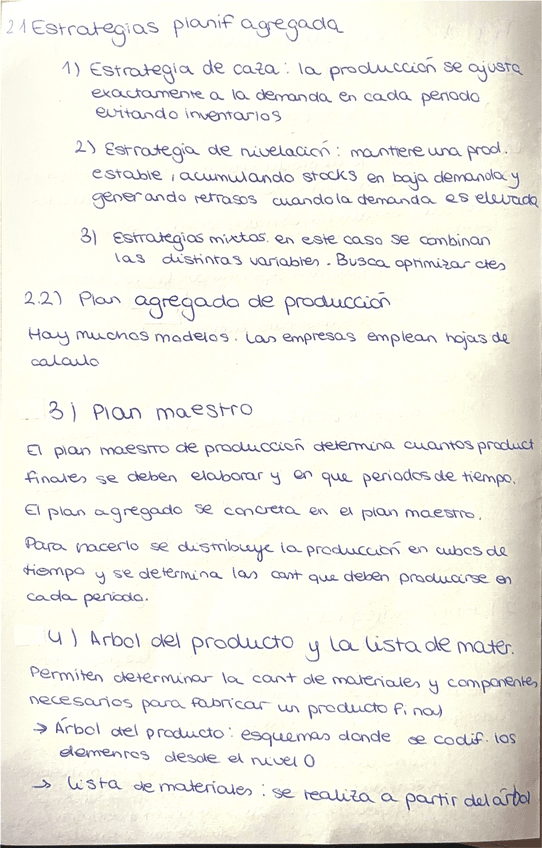 2.1 Estrategias planif agregada
1) Estrategia de caza: la producción se ajusta
exactamente a la demanda en cada periodo
evitando inventarios
2) Estrategia de nivelación: mantiene una prod.
estable, acumulando stocks en baja demanda y
generando retrasos cuando la demanda es elevada
3) Estrategias mixtas. en este caso se combinan
las distintas variables. Busca optimizar ctes
2.2) Plan agregado de producción
Hay muchos modelos. Las empresas emplean hojas de
calculo
3) Plan maestro
El plan maestro de producción determina cuantos product
finales se deben elaborar y en que periodos de tiempo.
El plan agregado se concreta en el plan maestro.
Para hacerlo se distribuye la producción en cubos de
tiempo y se determina las cant que deben producirse en
cada periodo.
4) Arbol del producto y la lista de mater.
Permiten determinar la cant de materiales y componentes
necesarios para fabricar un producto final
→ Árbol del producto: esquemas donde se codif. los
elementos desde el nivel 0
→ lista de materiales: se realiza a partir del árbol